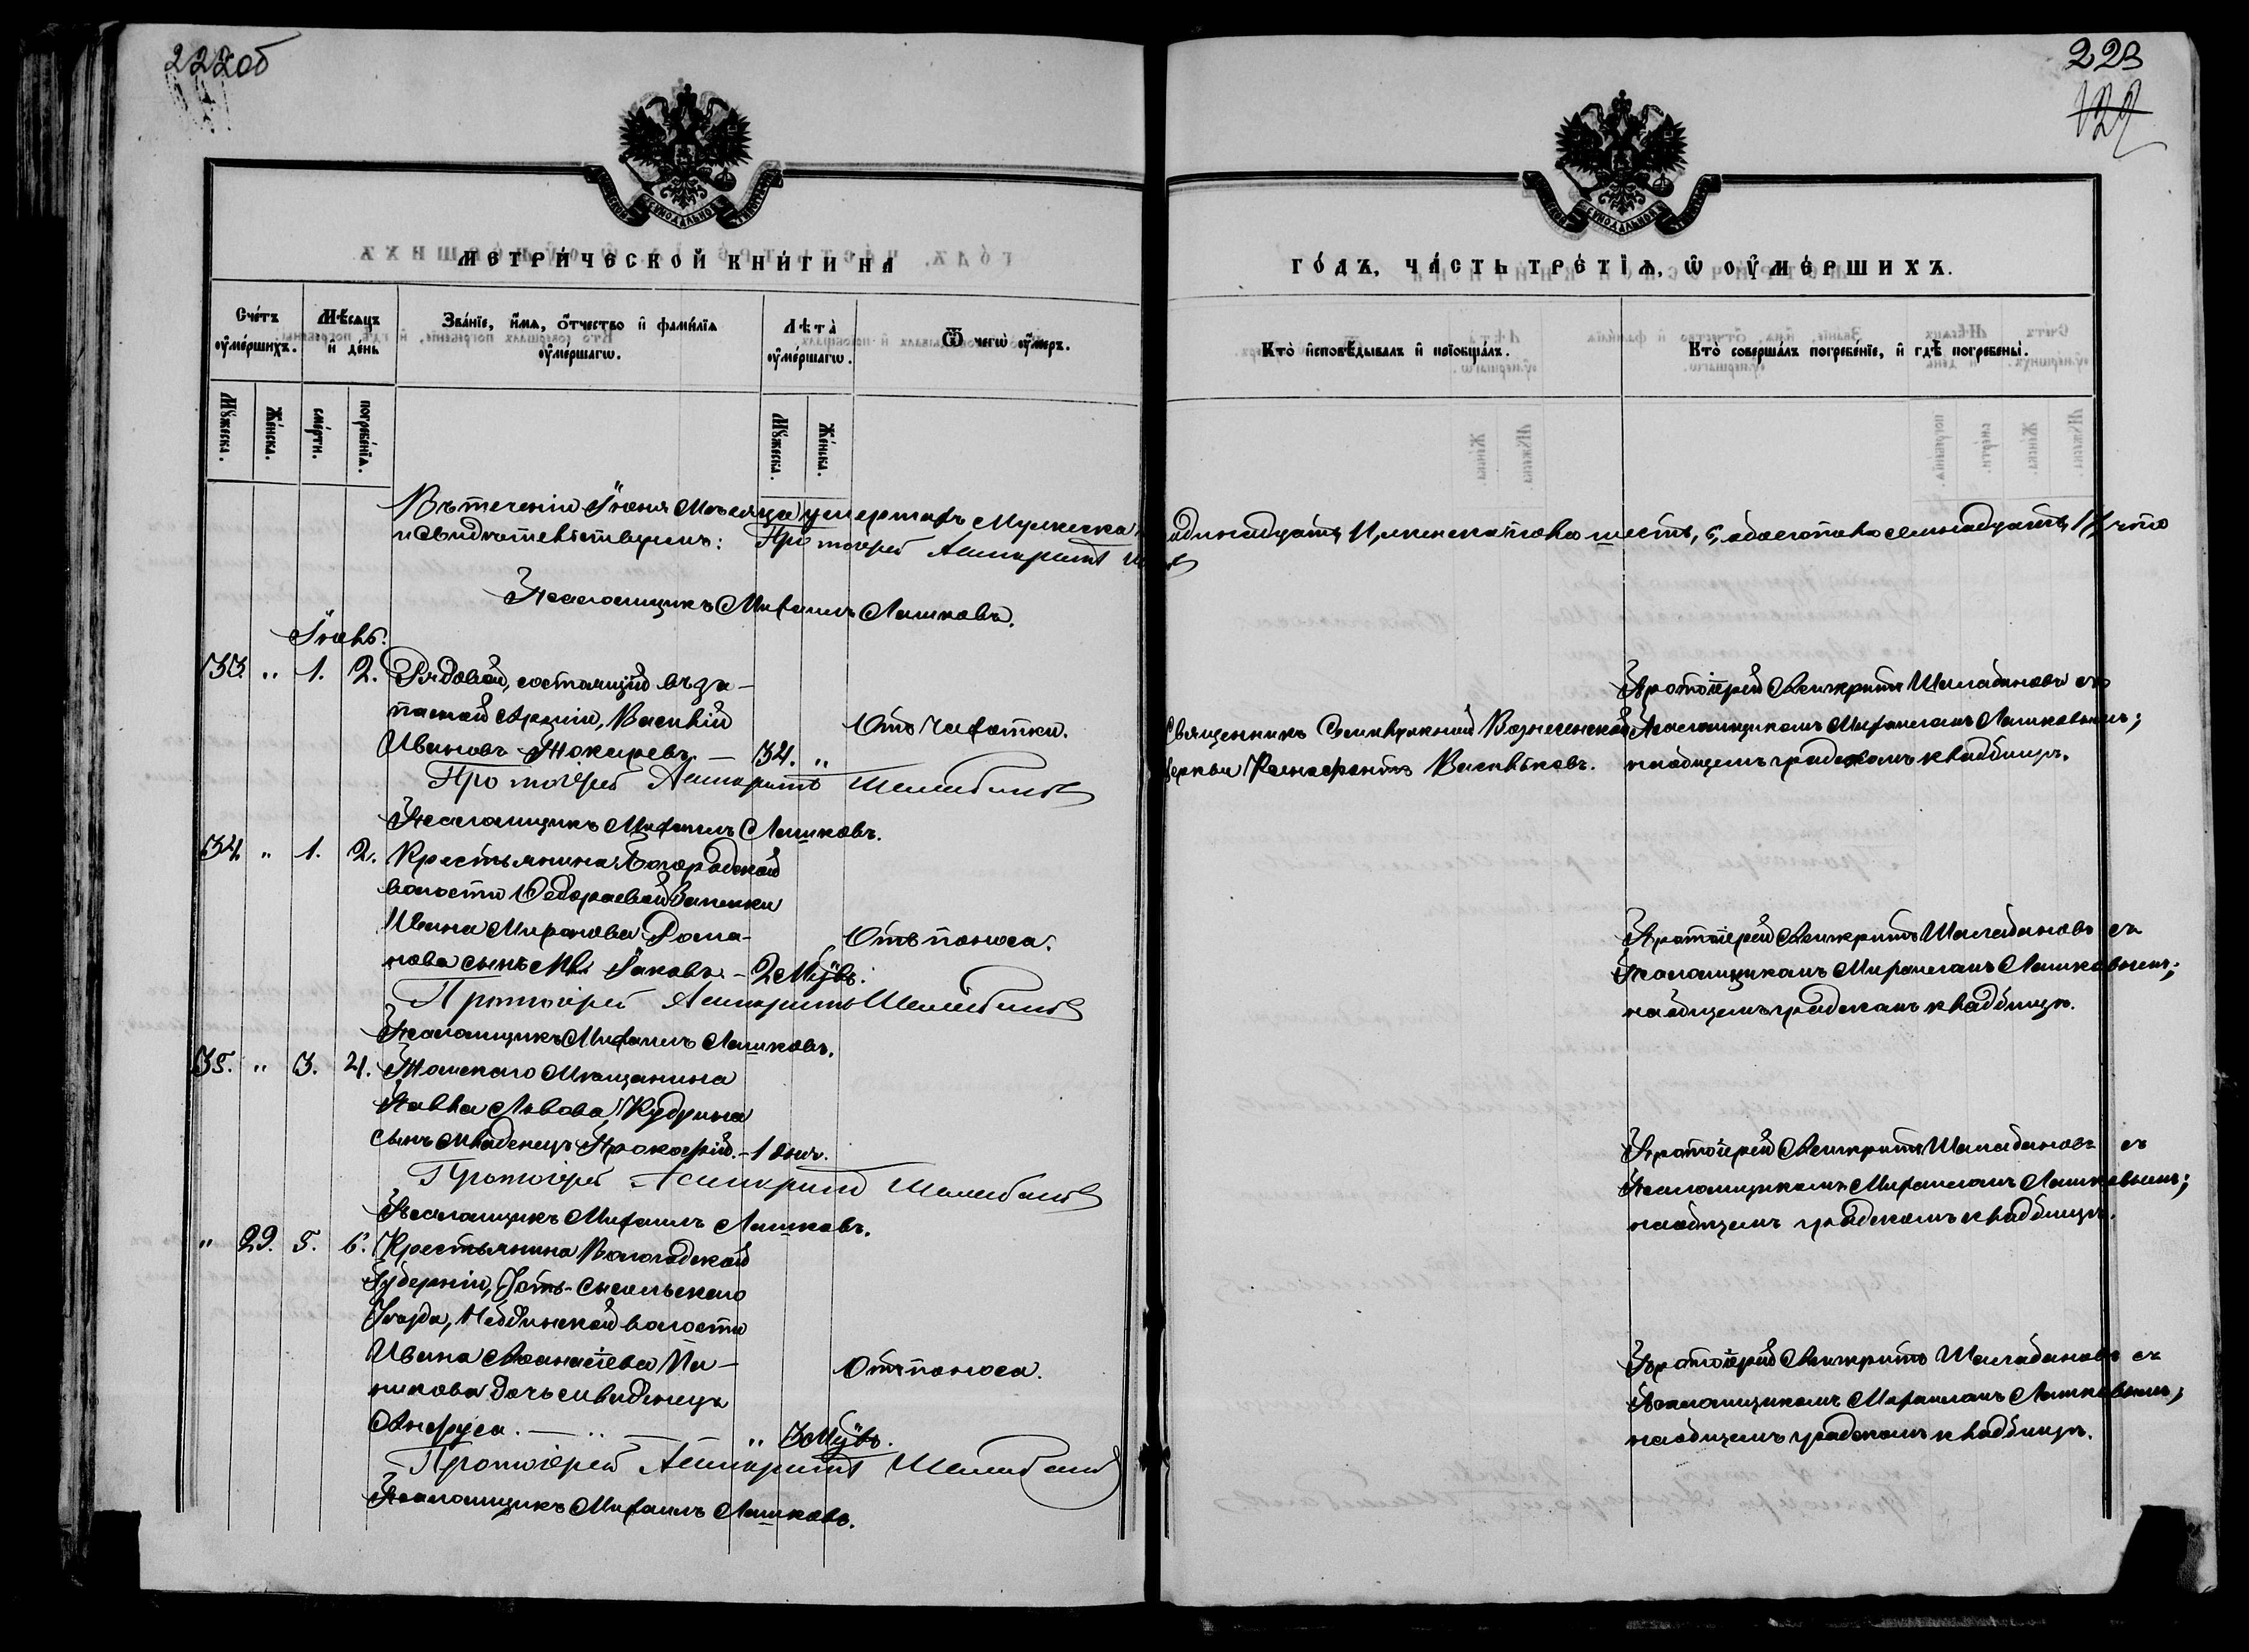 222об
223
122
МЕТРИ́ЧЕСКОЙ КНИ́ГИ НА
ГО́ДЪ, ЧА́СТЬ ТРЕ́ТІѦ, Ѡ ОУ҆МЕ́РШИХЪ.
Сче́тъ оу҆ме́ршихъ.
Мѣ́сѧцъ и҆ де́нь
Зва́нїе, и҆́мѧ, о҆́тчество и҆ фами́лїѧ оу҆ме́ршагѡ.
Лѣ́та̀ оу҆ме́ршагѡ.
Ѿ чегѡ̀ оу҆́меръ.
Кто̀ и҆сповѣ́дывалъ и҆ пріобща́лъ.
Кто̀ соверша́лъ погребе́нїе, и҆ гдѣ̀ погребены̀.
Мꙋ́жеска.
Же́нска.
сме́рти.
погребе́нїѧ.
Мꙋ́жеска.
Же́нска.
Въ теченіи Іюня Мѣсяца умершихъ Мужеска одинадцать, 11, женска пола шесть, 6, обоего пола семнадцать, 17, что
и свидѣтельствуемъ: Протоіерей Асинкритъ
Псаломщикъ Михаилъ Лашковъ.
Іюнь.
33. " 1. 2. Рядовой, состоящій въ за-
пасной Арміи, Василій
Ивановъ Токаревъ. — 34. "
Отъ Чахотки.
Священникъ Вознесенской
церкви Васильковъ.
Протоіерей Асинкритъ Шалабановъ съ
Псаломщикомъ Михаиломъ Лашковымъ;
на общемъ градскомъ кладбищѣ.
Протоіерей Асинкритъ Шалабановъ
Псаломщикъ Михаилъ Лашковъ.
34. " 1. 2. Крестьянина Богородской
волости
Ивана Миронова Рома-
нова сынъ Мл. Іаковъ. — 2 Мѣс.
Отъ поноса.
Протоіерей Асинкритъ Шалабановъ съ
Псаломщикомъ Михаиломъ Лашковымъ;
на общемъ градскомъ кладбищѣ.
Протоіерей Асинкритъ Шалабановъ
Псаломщикъ Михаилъ Лашковъ.
35. " 3. 4. Томскаго Мѣщанина
Павла Львова Кудрина
сынъ младенецъ Прокофій. — 1 дня.
Протоіерей Асинкритъ Шалабановъ съ
Псаломщикомъ Михаиломъ Лашковымъ;
на общемъ градскомъ кладбищѣ.
Протоіерей Асинкритъ Шалабановъ
Псаломщикъ Михаилъ Лашковъ.
" 29. 5. 6. Крестьянина Вологодской
Губерніи, Усть-Сысольскаго
Уѣзда, Небдинской волости
Ивана Аѳанасіева Па-
никова дочь младенецъ
Анфуса. — .. — " 3 Мѣс.
Отъ поноса.
Протоіерей Асинкритъ Шалабановъ съ
Псаломщикомъ Михаиломъ Лашковымъ;
на общемъ градскомъ кладбищѣ.
Протоіерей Асинкритъ Шалабановъ
Псаломщикъ Михаилъ Лашковъ.